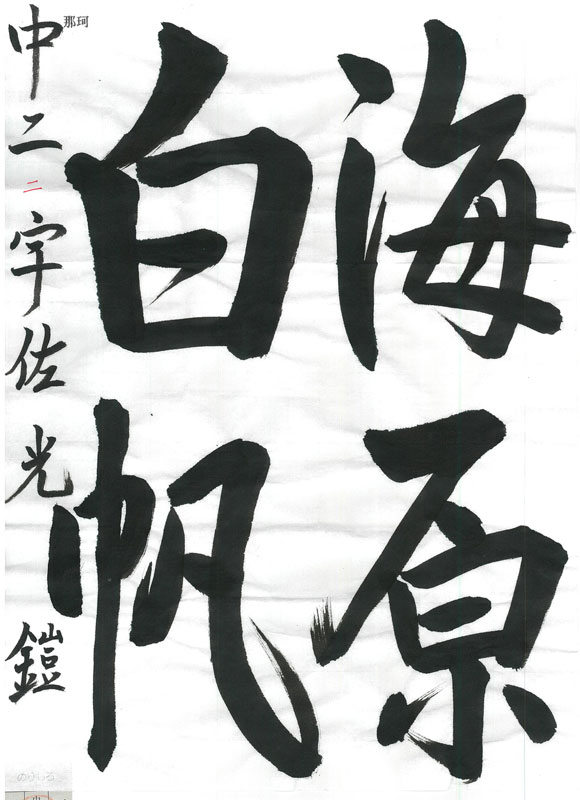 海原
白帆
那珂
中二 二 宇佐光 鎧